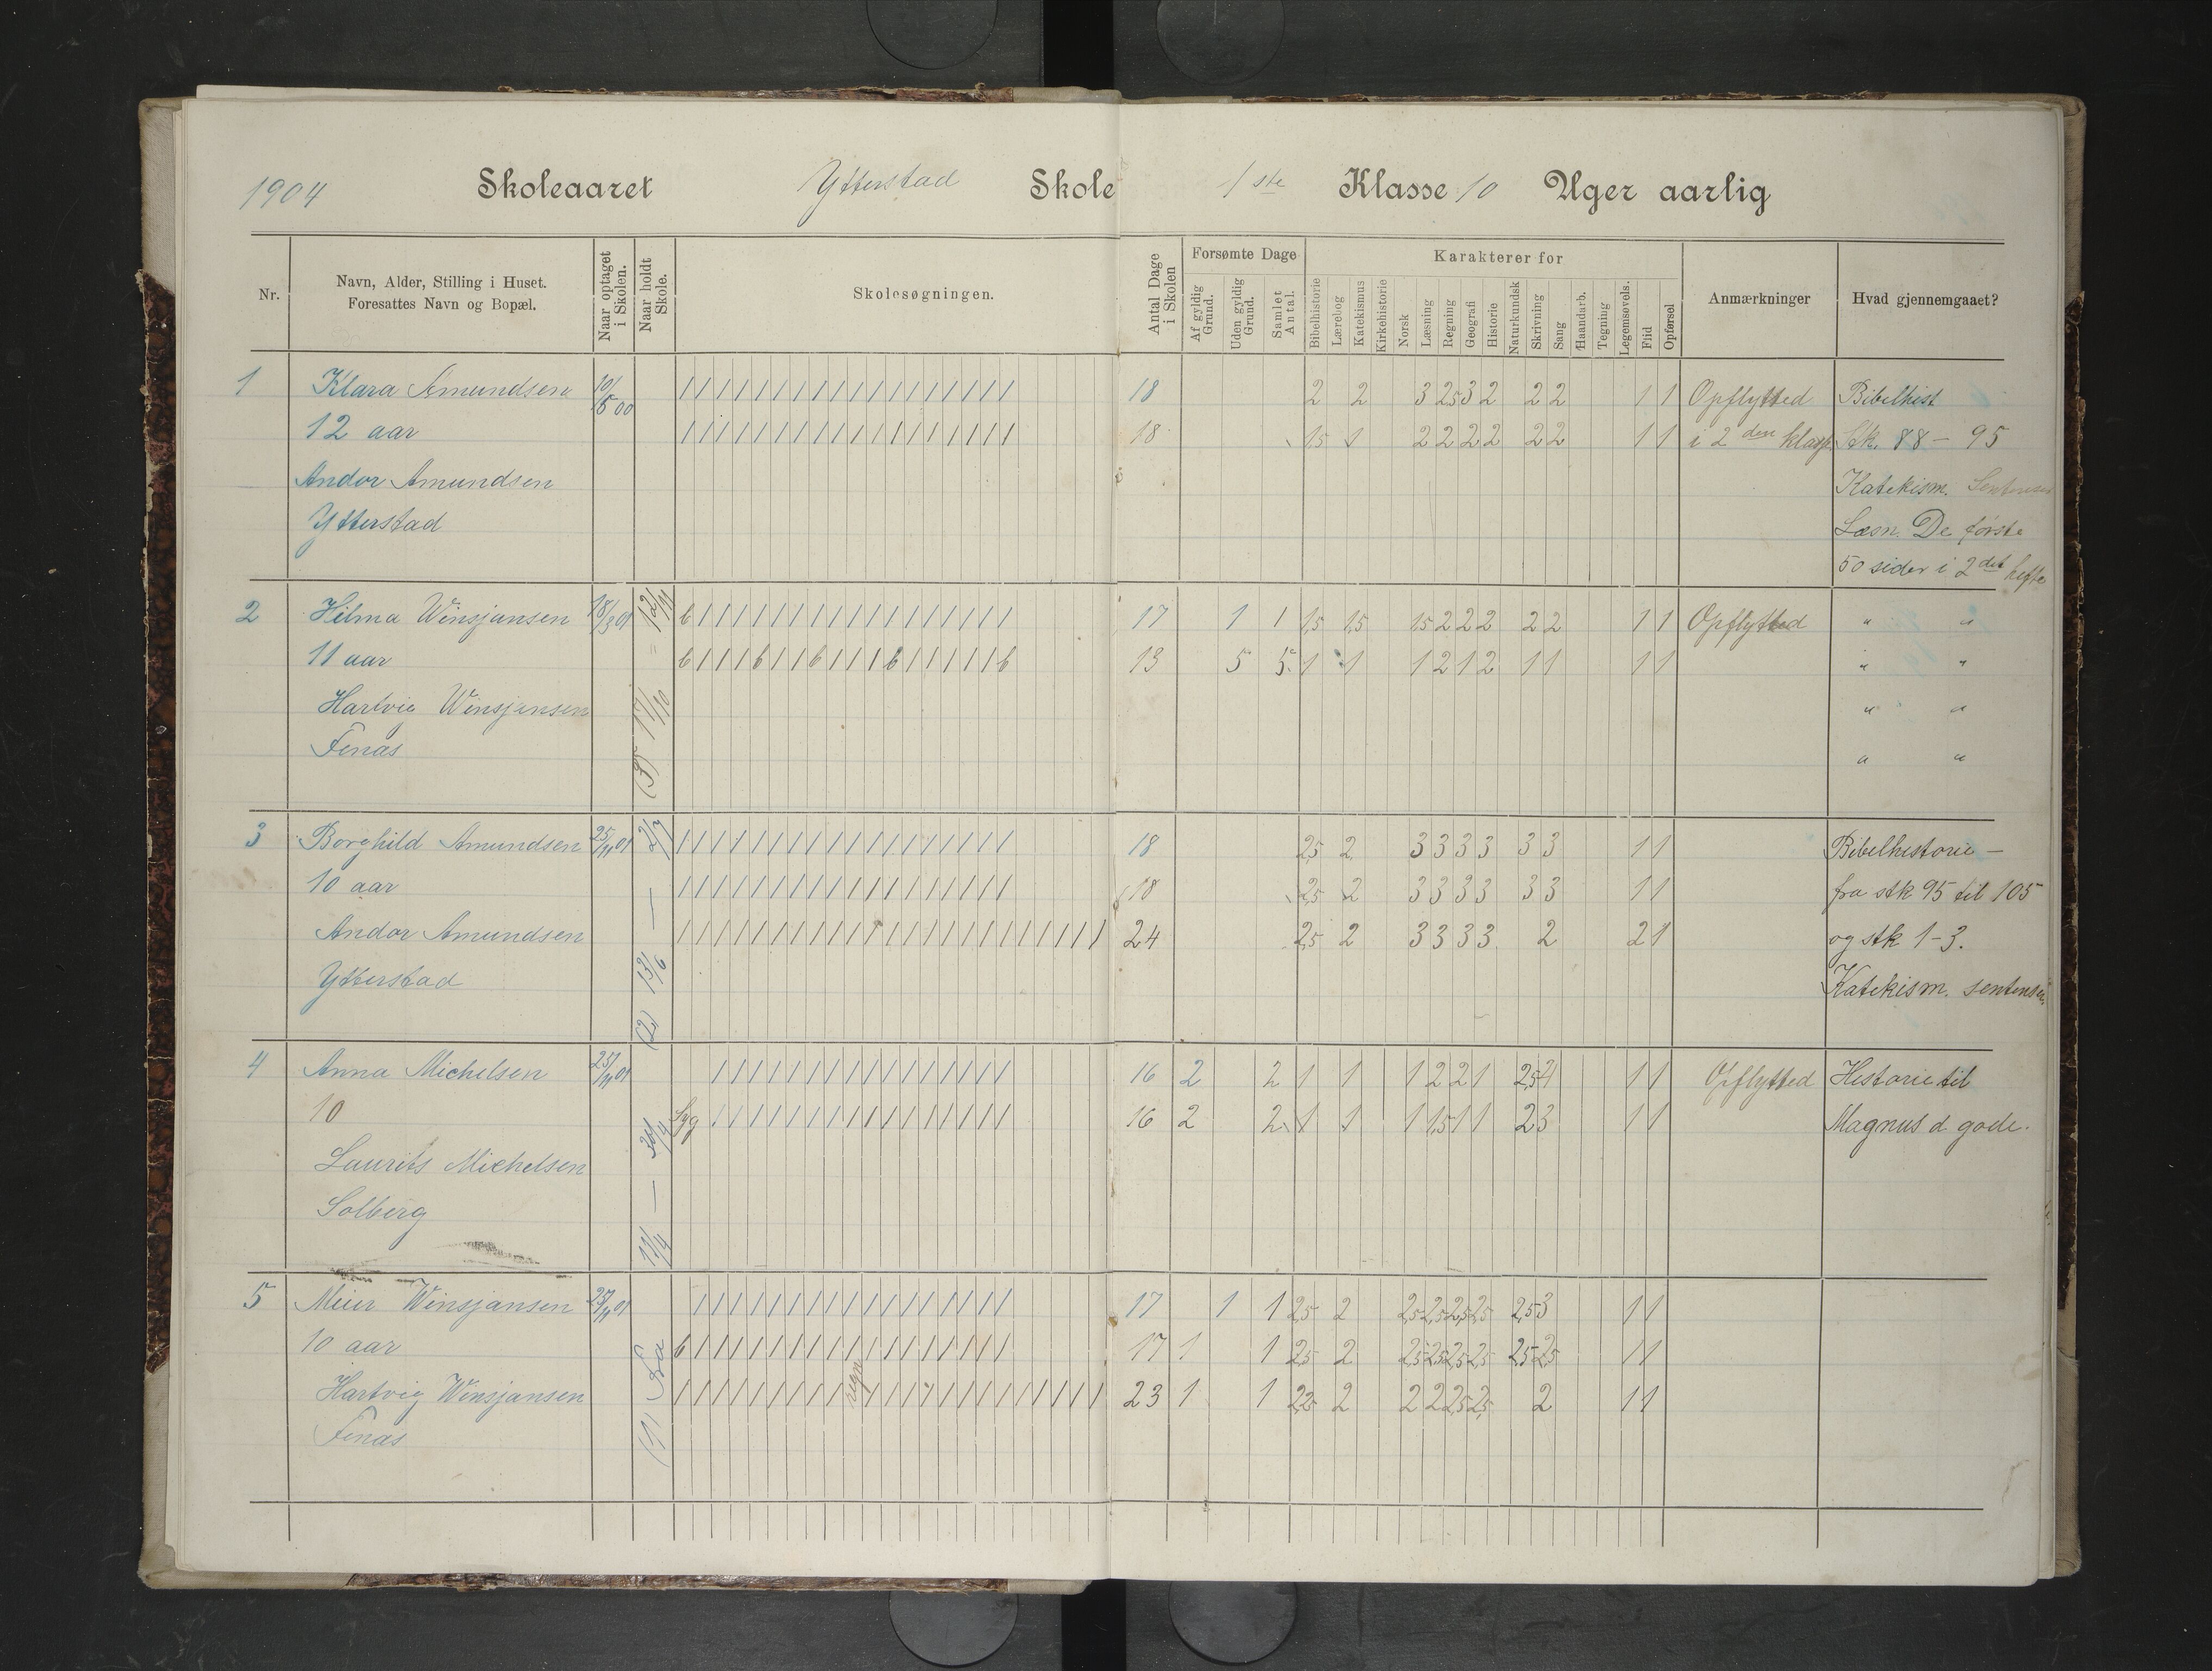 1904 Skoleaaret Ytterstad Skole 1ste Klasse 10 Uger aarlig
Nr.
Navn, Alder, Stilling i Huset.
Foresattes Navn og Bopæl.
Naar optaget
i Skolen.
Naar holdt
Skole.
Skolesøgningen.
Antal Dage
i Skolen
Forsømte Dage
Af gyldig
Grund.
Uden gyldig
Grund.
Samlet
Antal.
Karakterer for
Bibelhistorie
Lærebog
Katekismus
Kirkehistorie
Norsk
Læsning
Regning
Geografi
Historie
Naturkundsk
Skrivning
Sang
Haandarb.
Tegning
Legemsøvels.
Flid
Opførsel
Anmærkninger
Hvad gjennemgaaet?
1 Klara Amundsen 10/5 00 18 2 2 3 2,5 3 2 2 2 1 1 Opflytted Bibelhist
12 aar 18 1,5 1 2 2 2 2 2 2 1 1 i 2den klasse Stk. 88 - 95
Andor Amundsen Katekism. Sentenser
Ytterstad Læsn. De første
50 sider i 2det hefte
(1) Fra 11/4 — 30/4
(2) 13/6 — 2/7
(3) 17/10 = 12/11
2 Hilma Winsjansen 18/3 01 6 17 1 1 1,5 1,5 1,5 2 2 2 2 2 1 1 Opflytted " "
11 aar 6 6 6 6 6 13 5 5 1 1 1 2 1 2 1 1 1 1 " "
Hartvig Winsjansen " "
Finas " "
3 Borghild Amundsen 25/11 01 18 2,5 2 3 3 3 3 3 3 1 1 Bibelhistorie —
10 aar 18 2,5 2 3 3 3 3 3 3 1 1 fra stk 95 til 105
Andor Amundsen 24 2,5 2 3 3 3 3 2 2 1 og stk 1-3.
Ytterstad Katekism. sentenser
4 Anna Michelsen 25/11 01 16 2 2 1 1 1 2 2 1 2,5 4 1 1 Opflytted Historie til
10 Syg 16 2 2 1 1 1 1,5 1 1 2 3 1 1 Magnus d gode.
Laurits Michelsen
Solberg
5 Meier Winsjansen 25/11 01 17 1 1 2,5 2 2,5 2,5 2,5 2,5 2,5 3 1 1
10 aar 6 17 1 1 2,5 2 2,5 2,5 2,5 2,5 2,5 2,5 1 1
Hartvig Winsjansen 23 1 1 2,2 2 2 2 2,5 2,5 2 1 1
Finas